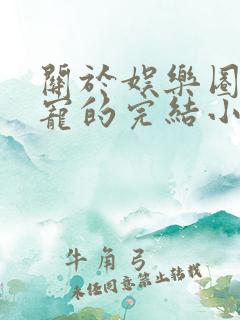 關於娛樂圈
寵的完結小
牛角弓
未经同意禁止转载